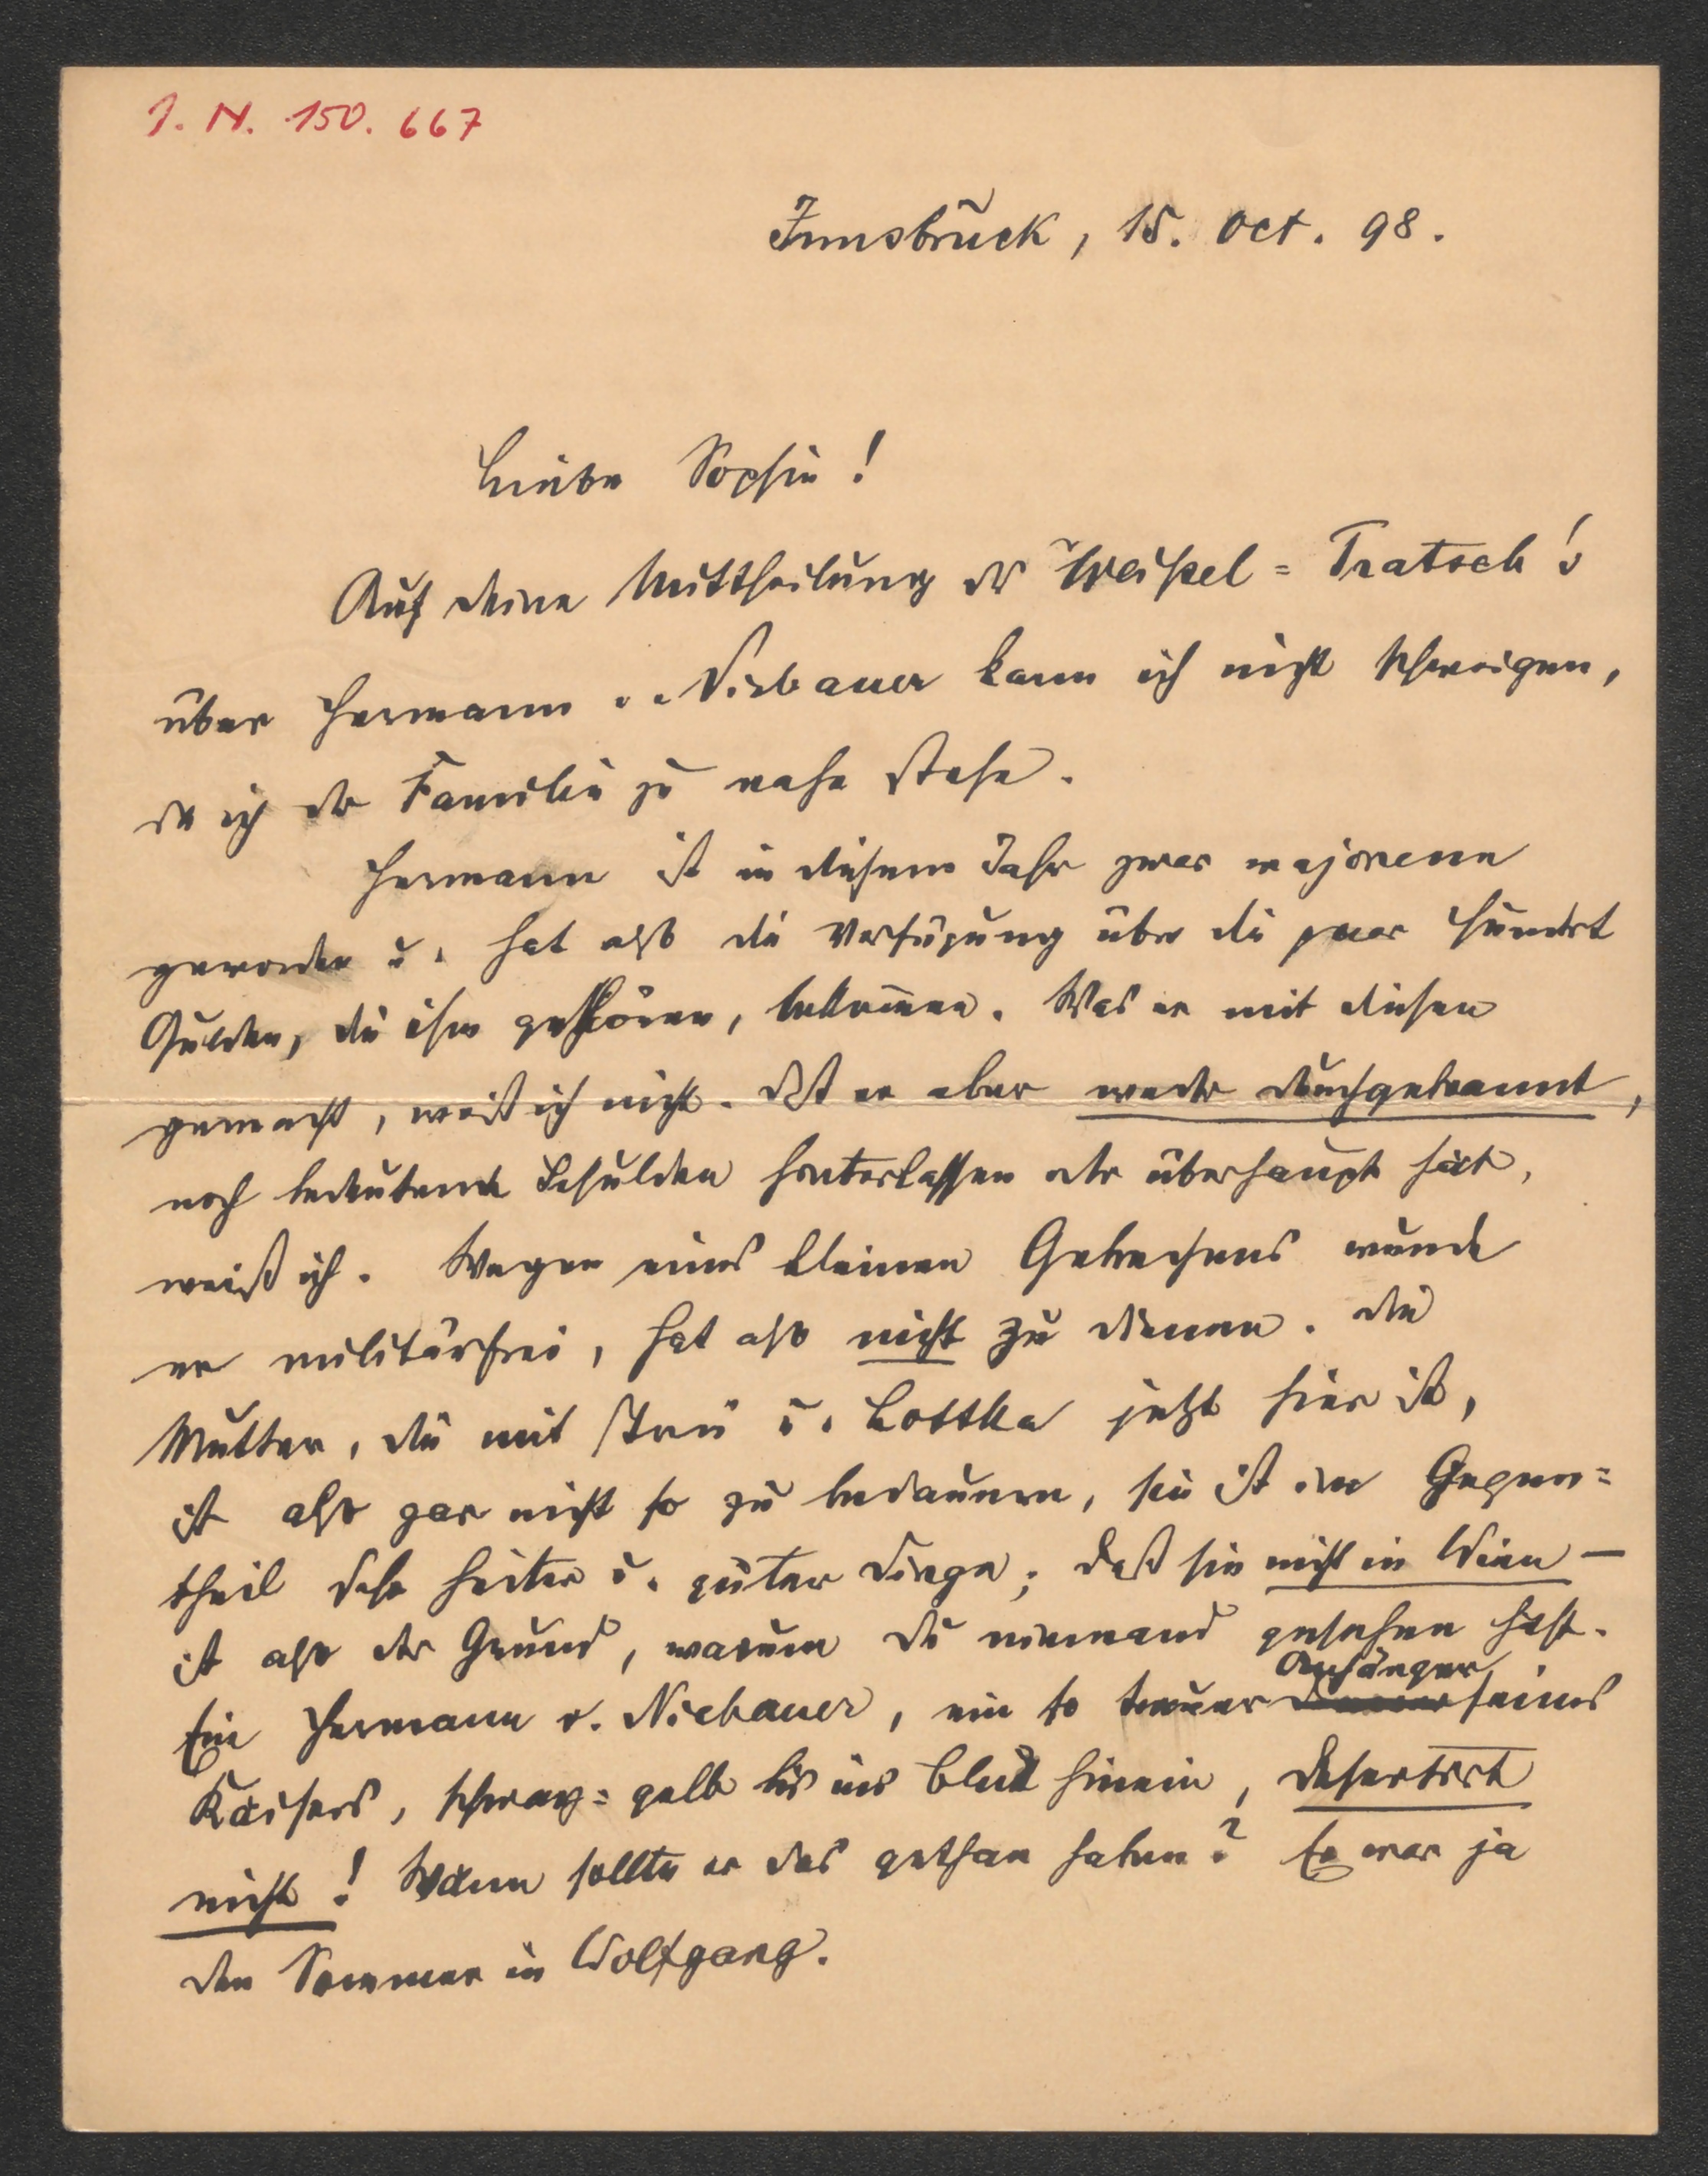 I. N. 150. 667
Innsbruck, 15. Oct. 98.
Liebe Sophie!
Auf deine Mittheilung des Weißel=Tratsch's
über Hermann v. Niebauer kann ich nicht schweigen,
da ich der Familie zu nahe stehe.
Hermann ist in diesem Jahr zwar majorenn
geworden u. hat also die Verfügung über die paar hundert
Gulden, die ihm gehören, bekommen. Was er mit diesen
gemacht, weiß ich nicht. Daß er aber weder durchgebrannt,
noch bedeutende Schulden hinterlassen oder überhaupt hat,
weiß ich. Wegen eines kleinen Gebrechens wurde
er militärfrei, hat also nicht zu dienen. Die
Mutter, die mit u. Lottka jetzt hier ist,
ist also gar nicht so zu bedauern, sie ist im Gegen=
theil sehr heiter u. guter Dinge; daß sie nicht in Wien –
ist also der Grund, warum du niemand gesehen hast.
Anhänger
Ein Hermann v. Niebauer, ein so treuer seines
Kaisers, schwarz=gelb bis ins Blut hinein, desertirt
nicht! Wann sollte er das gethan haben? Er war ja
den Sommer in Wolfgang.